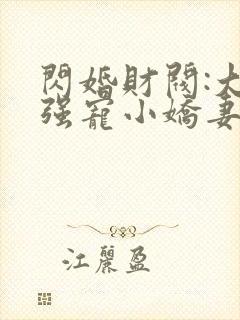 閃婚財閥:大
强寵小嬌妻
江麗盈